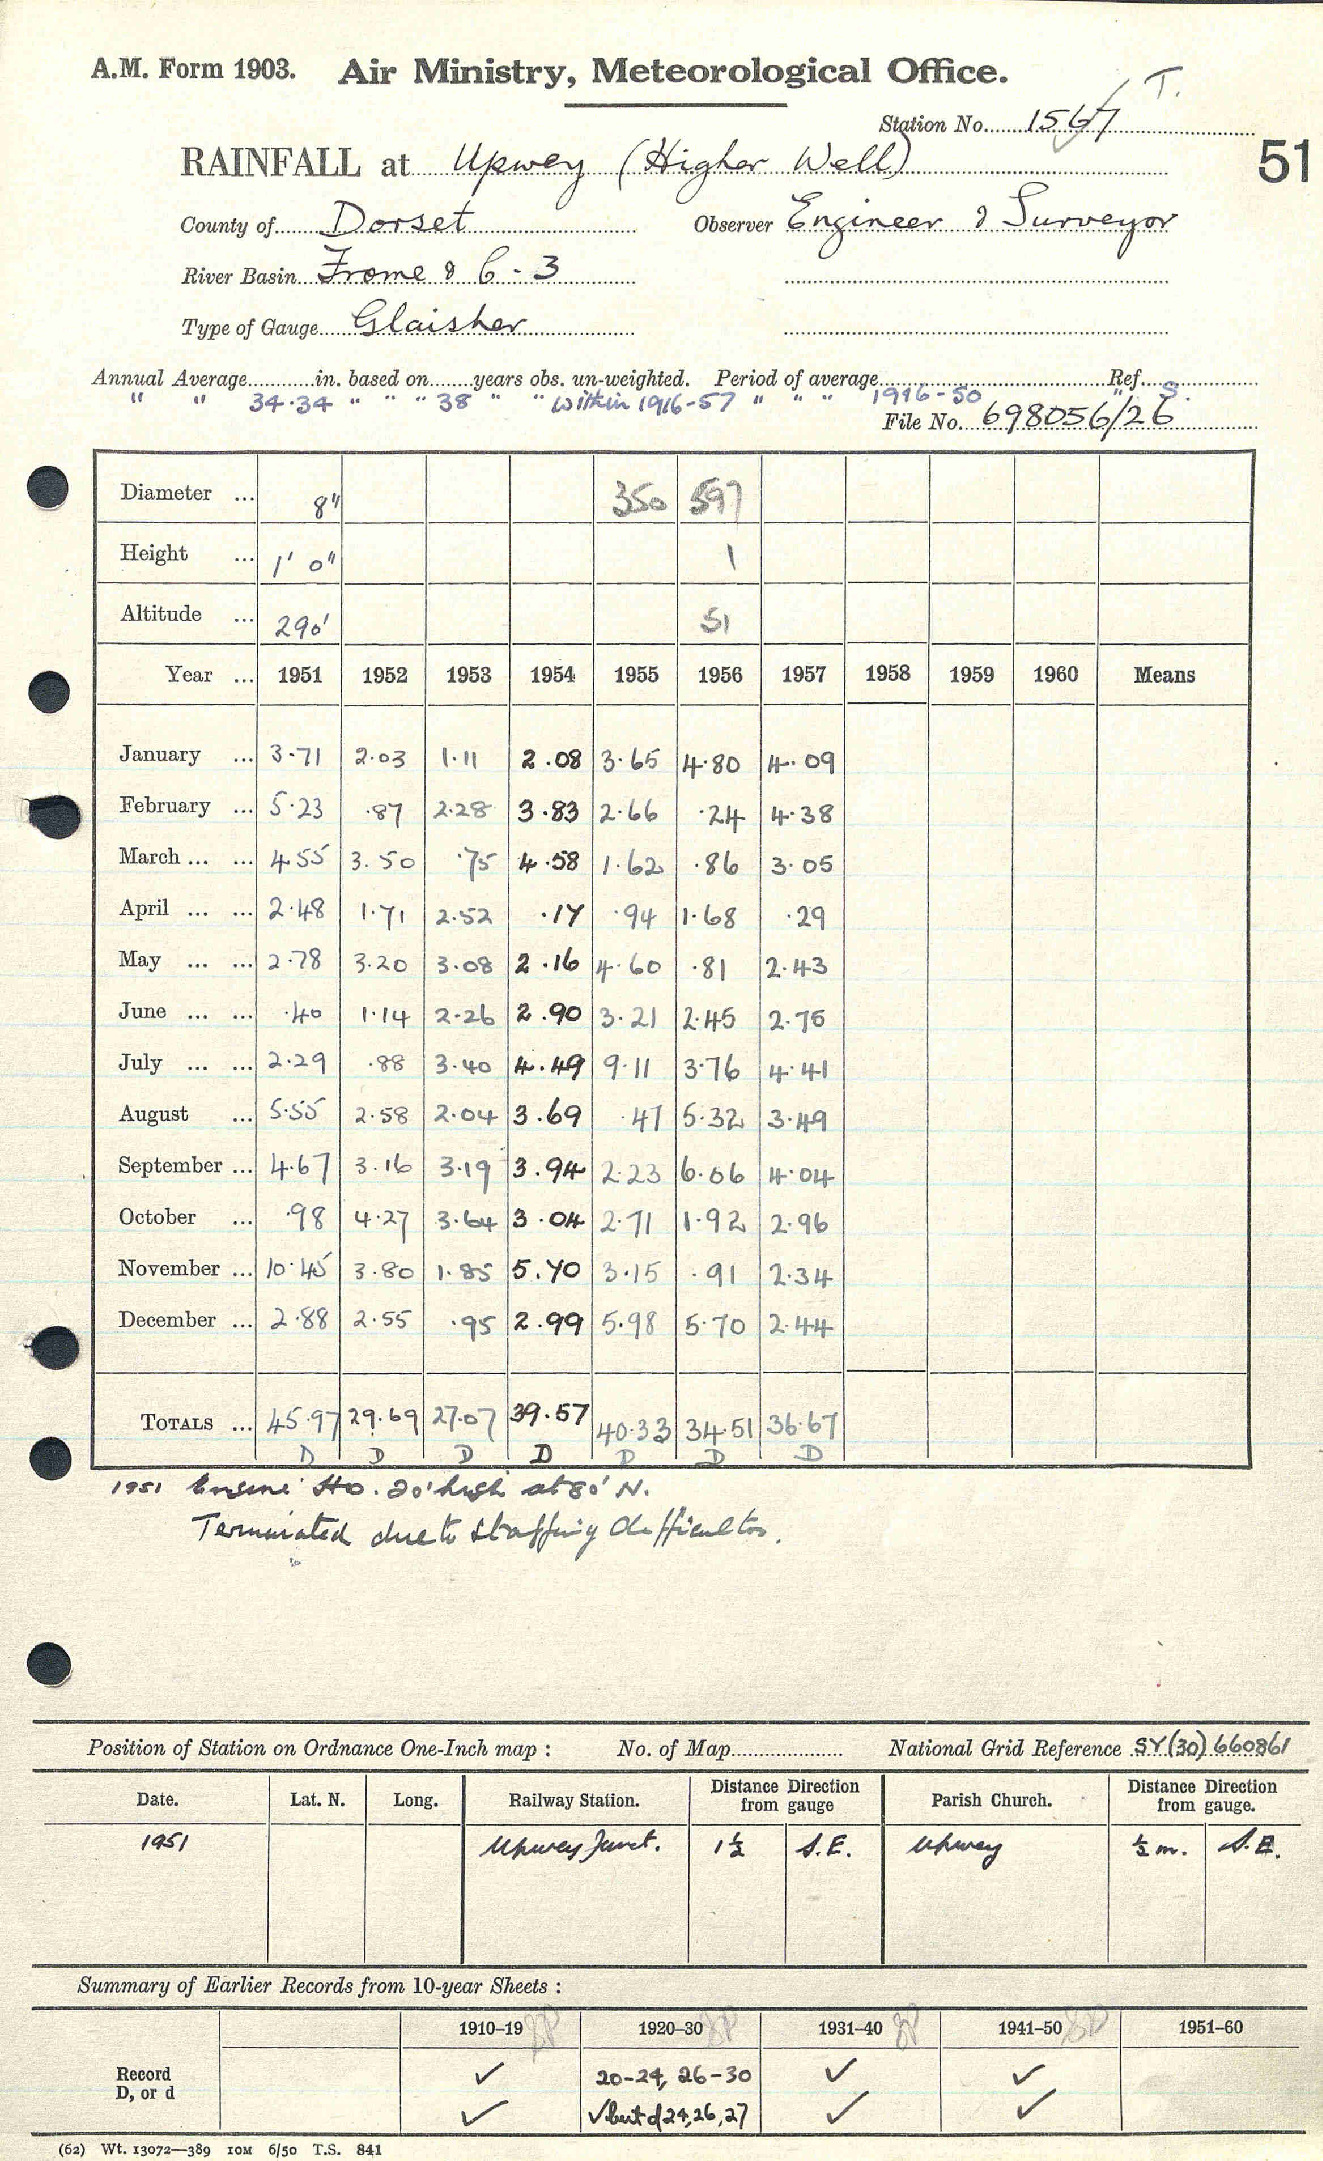 A.M. Form 1903. Air Ministry, Meteorological Office.
T.
Station No. 1567
51
RAINFALL at Upwey (Higher Well)
County of Dorset Observer Engineer & Surveyor
River Basin Frome & C - 3
Type of Gauge Glaisher
Annual Average in. based on years obs. un-weighted. Period of average Ref.
" " 34.34 " " " 38 " " Within 1916-57 " " " 1916-50 " S.
File No. 698056/26
Diameter ... 8" 350 597
Height ... 1' 0" 1
Altitude ... 290' 51
Year ... 1951 1952 1953 1954 1955 1956 1957 1958 1959 1960 Means
January ... 3.71 2.03 1.11 2.08 3.65 4.80 4.09
February ... 5.23 .87 2.28 3.83 2.66 .24 4.38
March ... ... 4.55 3.50 .75 4.58 1.62 .86 3.05
April ... ... 2.48 1.71 2.52 .17 .94 1.68 .29
May ... ... 2.78 3.20 3.08 2.16 4.60 .81 2.43
June ... ... .40 1.14 2.26 2.90 3.21 2.45 2.75
July ... ... 2.29 .88 3.40 4.49 9.11 3.76 4.41
August ... 5.55 2.58 2.04 3.69 .47 5.32 3.49
September ... 4.67 3.16 3.19 3.94 2.23 6.06 4.04
October ... .98 4.27 3.64 3.04 2.71 1.92 2.96
November ... 10.45 3.80 1.85 5.70 3.15 .91 2.34
December ... 2.88 2.55 .95 2.99 5.98 5.70 2.44
TOTALS ... 45.97 29.69 27.07 39.57 40.33 34.51 36.67
D D D D D D D
1951 Engine Ho. 20' high at 80' N.
Terminated due to staffing difficulties.
Position of Station on Ordnance One-Inch map : No. of Map National Grid Reference SY(30) 660861
Date. Lat. N. Long. Railway Station. Distance Direction from gauge Parish Church. Distance Direction from gauge.
1951 Upwey Junct. 1½ S.E. Upwey ½ m. S.E.
Summary of Earlier Records from 10-year Sheets :
1910-19 1920-30 1931-40 1941-50 1951-60
Record ✓ 20-24, 26-30 ✓ ✓
D, or d ✓ ✓ but d 24, 26, 27 ✓ ✓
(62) Wt. 13072—389 10M 6/50 T.S. 841